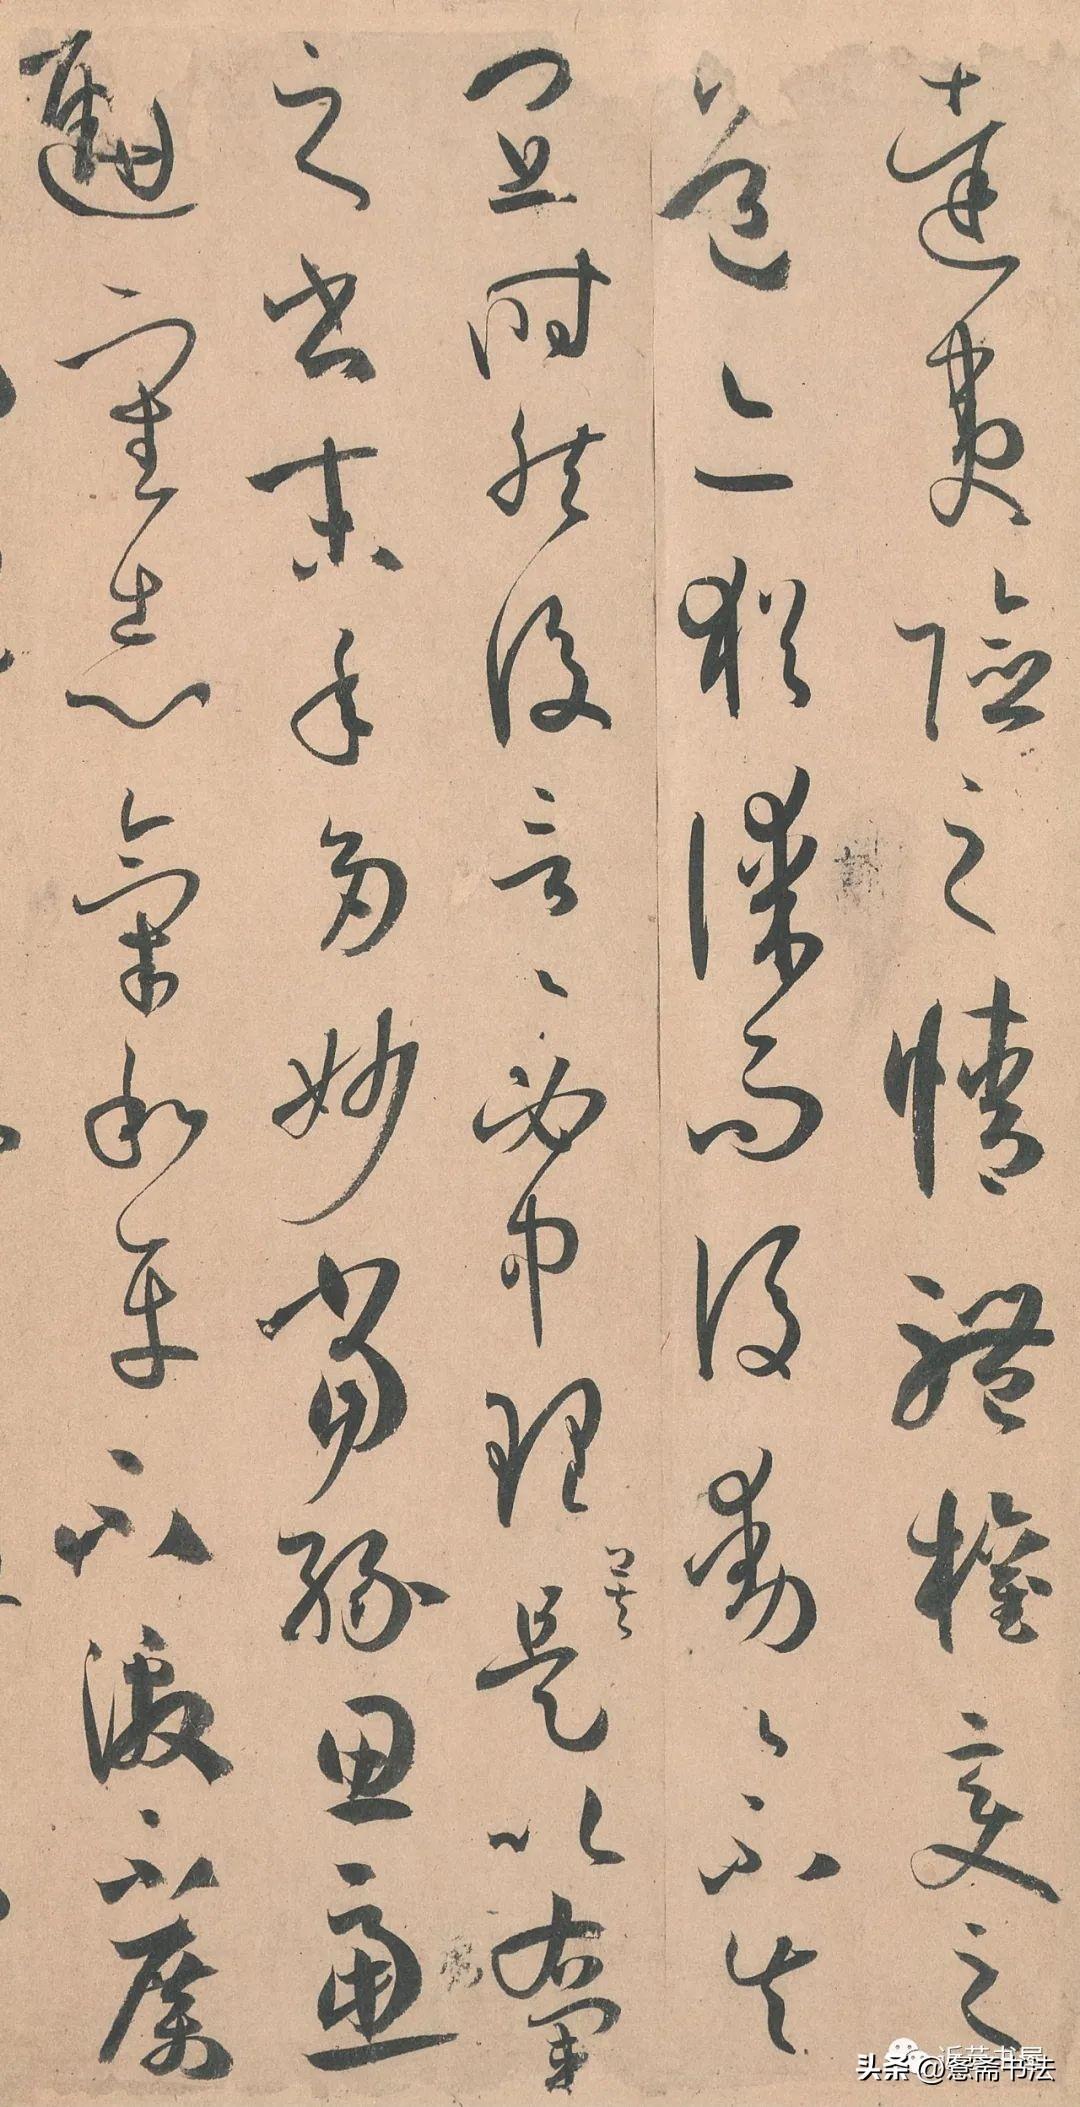 達夷險之情體權變之
道亦猶謀而後動〻不失
宜時然後言〻必中理矣是以右軍
之書末年多妙當緣思慮
通審志氣和平不激不厲
头条@愙斋书法